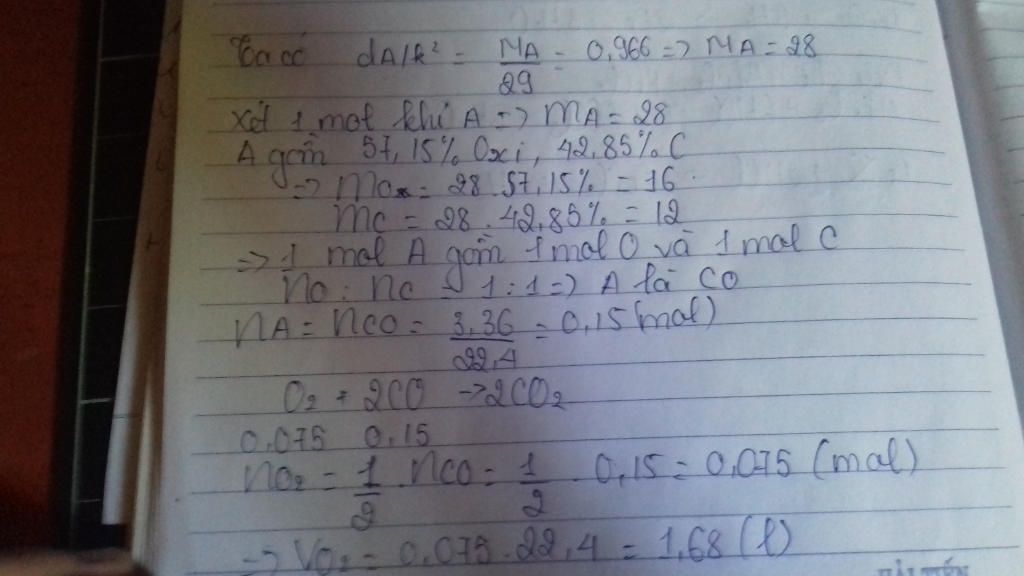 Ta có dA/k² = MA/29 = 0,966 => MA = 28
Xét 1 mol khí A => mA = 28
A gồm 57,15% Oxi, 42,85% C
=> mO = 28.57,15% = 16
mC = 28.42,85% = 12
=> 1 mol A gồm 1 mol O và 1 mol C
nO : nC = 1 : 1 => A là CO
nA = nCO = 3,36/22,4 = 0,15 (mol)
O₂ + 2CO -> 2CO₂
0,075 0,15
nO₂ = 1/2 . nCO = 1/2 . 0,15 = 0,075 (mol)
=> VO₂ = 0,075.22,4 = 1,68 (l)
HẢI TIẾN